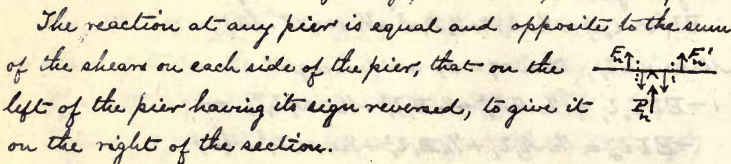 The reaction at any pier is equal and opposite to the sum
of the shears on each side of the pier, that on the
left of the pier having its sign reversed, to give it
on the right of the section.
F_n F_n'
P_n